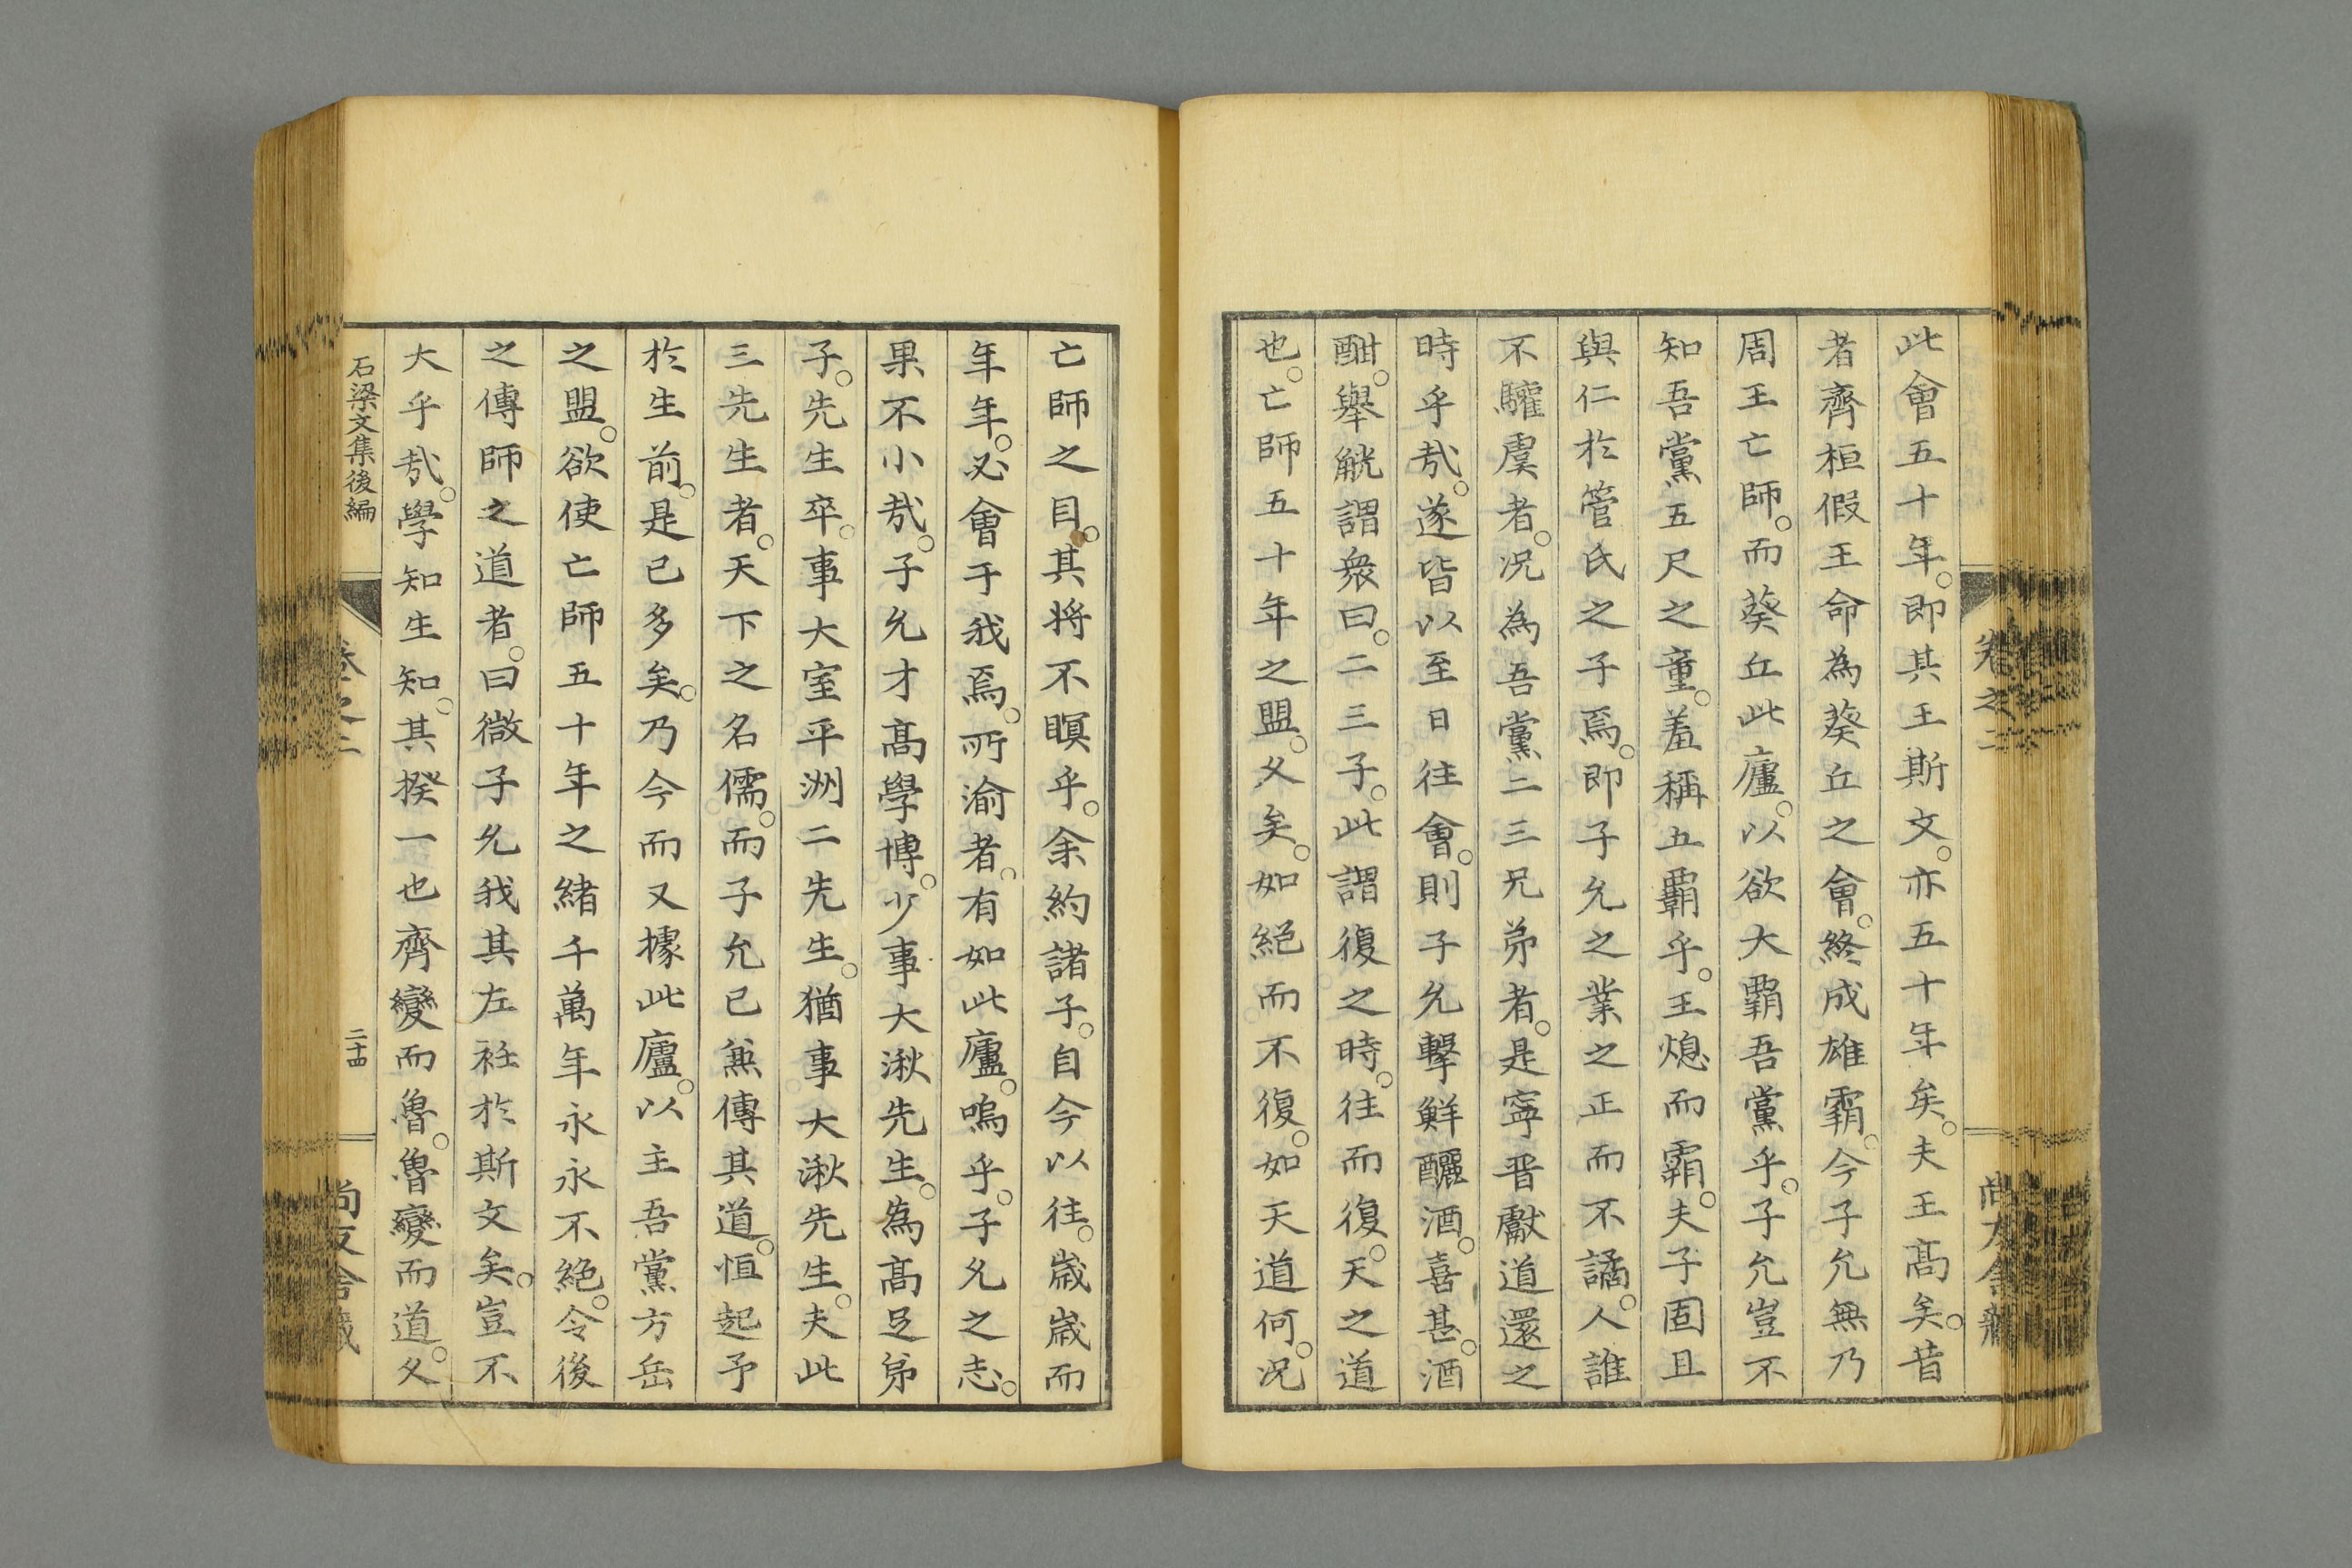 此會五十年。即其王斯文。亦五十年矣。夫王髙矣。昔
者齊桓假王命為葵丘之會。終成雄霸。今子允無乃
周王亡師。而葵丘此廬。以欲大覇吾黨乎。子允豈不
知吾黨五尺之童。羞稱五覇乎。王熄而霸。夫子固且
與仁於管氏之子焉。即子允之業之正而不譎。人誰
不驩虞者。况為吾黨二三兄弟者。是寧晋獻道還之
時乎哉。遂皆以至日往會。則子允擊鮮釃酒。喜甚。酒
酣。舉觥謂衆曰。二三子。此謂復之時。往而復。天之道
也。亡師五十年之盟。久矣。如絕而不復。如天道何。况
亡師之目。其将不瞑乎。余約諸子。自今以往。歲歲而
年年。必會于我焉。所渝者。有如此廬。嗚乎。子允之志。
果不小哉。子允才髙學博。少事大湫先生。為髙足弟
子。先生卒。事大室平洲二先生。猶事大湫先生。夫此
三先生者。天下之名儒。而子允已無傳其道。恒起予
於生前。是已多矣。乃今而又據此廬。以主吾黨方岳
之盟。欲使亡師五十年之緒千萬年永永不絕。令後
之傳師之道者。曰微子允我其左衽於斯文矣。豈不
大乎哉。學知生知。其揆一也齊變而魯。魯變而道。久
石梁文集後編
卷之二
二十四